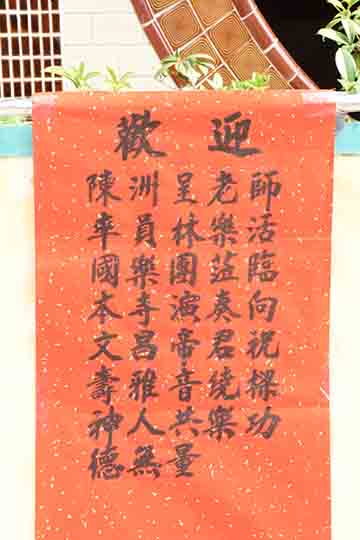 歡迎
陳洲呈老師
率員林樂活
國樂團蒞臨
本寺演奏向
文昌帝君祝
壽雅音繞樑
神人共樂功
德無量